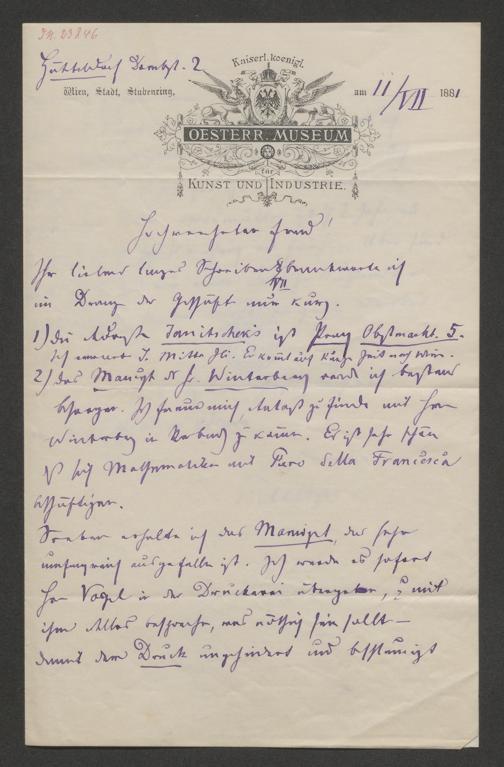 I.N. 23846
Hütteldorf Dornbst. 2
Kaiserl. koenigl.
Wien, Stadt, Stubenring,
am 11/VII 1881
OESTERR. MUSEUM
für
KUNST UND INDUSTRIE.
Hochverehrter Freund!
Ihr lieber langes Schreiben beantworte ich
im Drange der Geschäfte nur kurz.
VII
1) die Adresse Janitschek's ist Prag Obstmarkt. 5.
Ich erwarte J. Mitte Juli. Er kommt auf kurze Zeit nach Wien.
2) das Manuscpt des Hr. Winterberg werde ich bestens
besorgen. Ich freue mich Anlaß zu finden mit Herrn
Winterberg in Verbindg zu kommen. Es ist sehr schön
daß sich Mathematiker mit Piero della Francesca
beschäftigen.
Soeben erhalte ich das Manuscpt, das sehr
umfangreich ausgefallen ist. Ich werde es sofort
Herrn Vogel in der Druckerei übergeben, u mit
ihm Alles besprechen, was nöthig sein sollte –
damit dem Druck ungehindert und beschleunigt